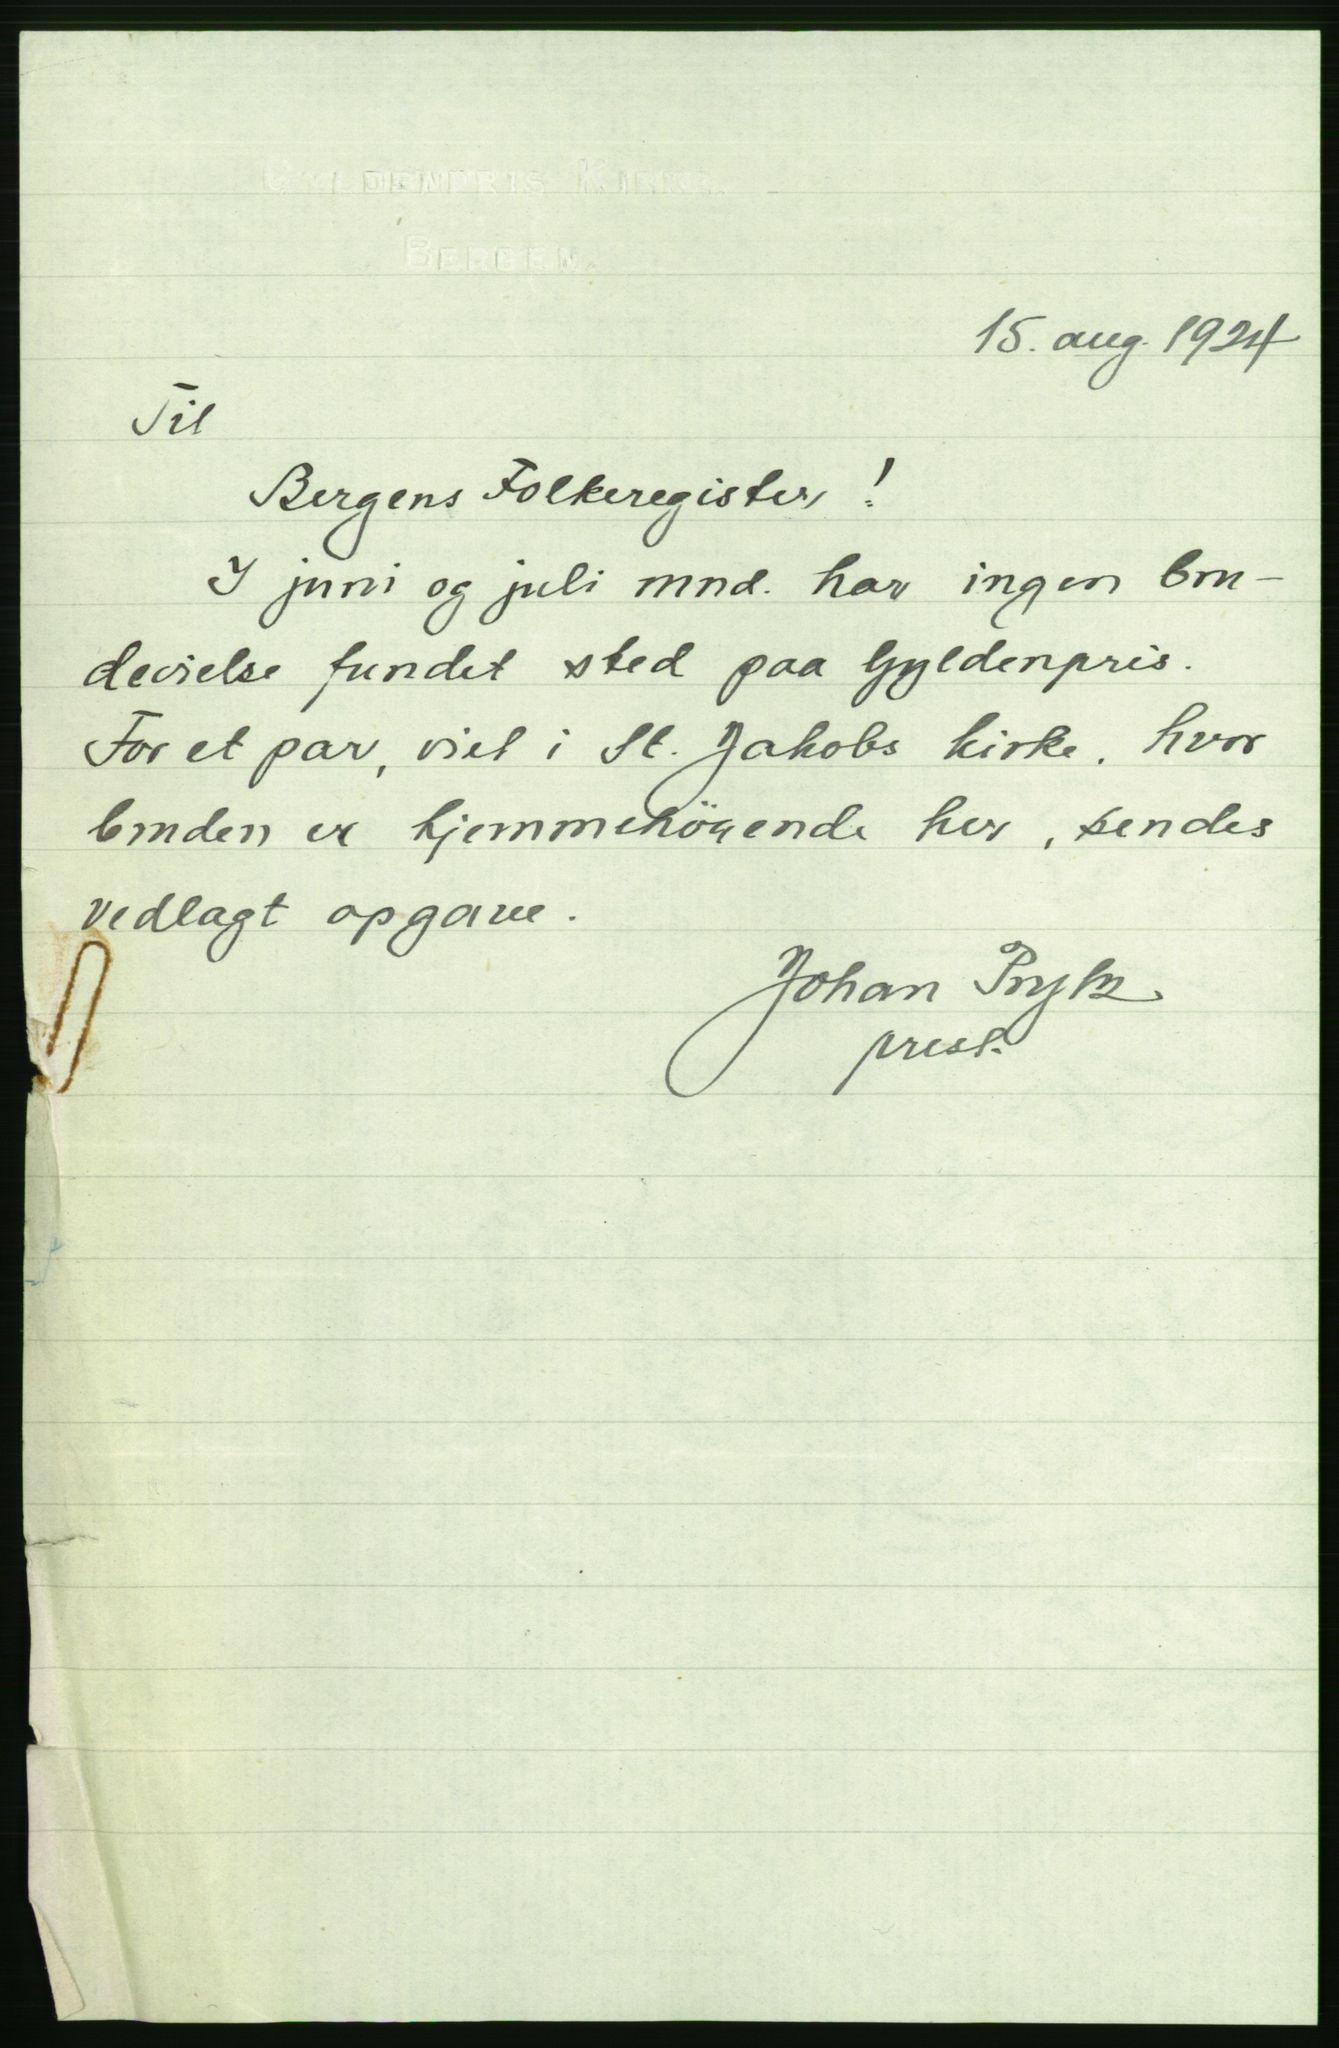 GYLDENPRIS KIRKE.
BERGEN.
15. aug. 1924
Til
Bergens Folkeregister!
I juni og juli mnd. har ingen bru-
devielse fundet sted paa Gyldenpris.
For et par, viet i St. Jakobs kirke, hvor
bruden er hjemmehörende her, sendes
vedlagt opgave.
Johan Prytz
prest.